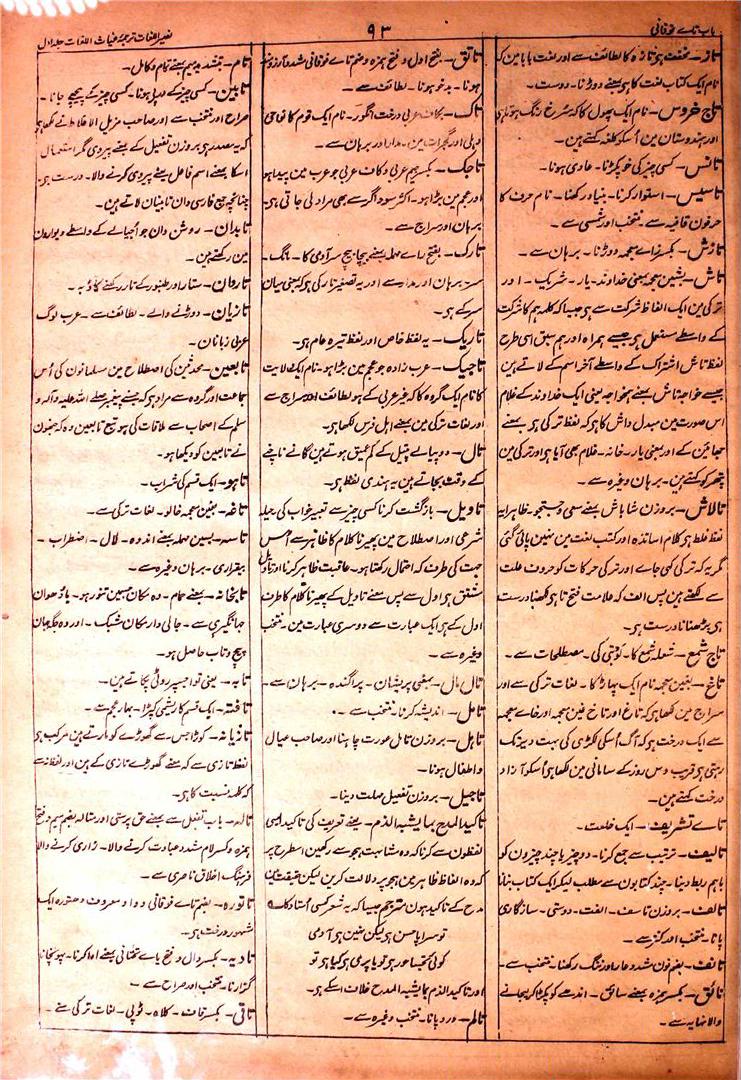 باب تائے فوقانی
۹۳
نصیر اللغات ترجمۂ غیاث اللغات جلد اول
تاز۔ مخفف ہو تازندہ کا لطائف سے اور لغت
نام ایک کتاب لغت کا ہی بمعنے دوڑنا۔ دوست۔
تاج خروس۔ نام ایک پھول کا کہ سُرخ رنگ ہوتا ہی
اور ہندوستان مین اُسکو کلغہ کہتے ہین۔
تانس۔ کسی چیز کی خو پکڑنا۔ عادی ہونا۔
تاسیس۔ استوار کرنا۔ بنیاد رکھنا۔ نام حرف کا
حرفون قافیہ سے منتخب اور شمسی سے۔
تازش۔ بکسر زاے معجمہ دوڑنا۔ برہان سے۔
تاش۔ بشین معجمہ بمعنی خداوند۔ یار۔ شریک۔ اور
ترکی مین ایک الفاظ شرکت سے ہی جیسا کہ کلمہ ہم کا شرکت
کے واسطے مستعمل ہی جیسے ہمراہ اور ہم سبق اسی طرح
لفظ تاش اشتراک کے واسطے آخر اسم کے لاتے ہین
جیسے خواجہ تاش بمعنے ہمخواجہ یعنی ایک خداوند کے غلام
اس صورت مین مبدل داش کا ہی کہ لفظ ترکی ہی بمعنے
پتھر کو کہتے ہین۔ برہان وغیرہ سے۔
تالاش۔ بروزن شاباش بمعنے سعی و جستجو۔ ظاہرا یہ
لفظ غلط ہی کلام اساتذہ اور کتب لغت مین نہین پائی گئی
مگر یہ کہ ترکی کہی جاے اور ترکی حرکات کو حروف علت
سے لکھتے ہین پس الف کہ علامت فتح تا ہی لکھنا درست
ہی پڑھنا نادرست ہی۔
تاج شمع۔ شعلہ شمع کا۔ کو بتی کی۔ مصطلحات سے۔
تاغ۔ بغین معجمہ نام ایک پہاڑ کا۔ لغات ترکی سے اور
سراج مین لکھا ہی کہ تاغ اور تاخ غین معجمہ اور خاے معجمہ
سے ایک درخت ہی کہ آگ اُسکی لکڑی کی بہت دیر تک
رہتی ہی قریب دس روز کے سامانی مین لکھا ہی اُسکو آزاد
درخت کہتے ہین۔
تاے تشریف۔ ایک خلعت۔
تالیف۔ ترتیب سے جمع کرنا۔ دو چیز یا چند چیزون کو
باہم ربط دینا۔ چند کتابون سے مطلب لیکر ایک کتاب بنانا
تالف۔ بروزن تاسف۔ الفت۔ دوستی۔ سازگاری
پانا۔ منتخب اور کنز سے۔
تانف۔ بضم نون مشدد عار اور ننگ رکھنا۔ منتخب سے۔
تائق۔ بکسر ہمزہ بمعنے سائق۔
والا نہایہ سے۔
تائق۔ بفتح اول و فتح ہمزہ و ضم تاے فوقانی مشدد آرزومند
ہونا۔ بدخو ہونا۔ لطائف سے۔
تاک۔ بکاف عربی درخت انگور۔ نام ایک قوم کا نواحی
دہلی اور گجرات مین۔ مدار اور برہان سے۔
تاجک۔ بکسر جیم عربی و کاف عربی جو عرب مین پیدا ہو
اور عجم مین بڑا ہو۔ اکثر سوداگر سے بھی مراد لی جاتی ہی۔
برہان اور سراج سے۔
تارک۔ بفتح راے مہملہ بمعنے بیچا بیچ سر آدمی کا۔ مانگ۔
سر۔ برہان اور مدار سے اور یہ تصغیر تار کی ہی کہ بمعنی میان
سر کے ہی۔
تاریک۔ یہ لفظ خاص اور لفظ تیرہ عام ہی۔
تاجیک۔ عرب زادہ جو عجم مین بڑا ہو۔ نام ایک ولایت
کا نام ایک گروہ کا کہ غیر عربی کے ہو لطائف اور سراج سے
اور لغات ترکی مین بمعنے اہل فرس لکھا ہی۔
تال۔ دو پیالے پیتل کے کم عمیق ہوتے ہین گانے ناچنے
کے وقت بجاتے ہین یہ ہندی لفظ ہی۔
تاویل۔ بازگشت کرنا کسی چیز سے تعبیر خواب کی حیلہ
شرعی اور اصطلاح مین پھیرنا کلام کا ظاہر سے اُس
جہت کی طرف کہ احتمال رکھتا ہو۔ عاقبت ظاہر کرنا اور تاویل
مشتق ہی اول سے پس معنے تاویل کے پھیرنا کلام کا طرف
اول کے ہی ایک عبارت سے دوسری عبارت مین۔ منتخب
وغیرہ سے۔
تال مال۔ بمعنی پریشان۔ پراگندہ۔ برہان سے۔
تامل۔ اندیشہ کرنا۔ منتخب سے۔
تاہل۔ بروزن تامل عورت چاہنا اور صاحب عیال
و اطفال ہونا۔
تاجیل۔ بروزن تفعیل مہلت دینا۔
تاکید المدح بما یشبہ الذم۔ یعنے تعریف کی تاکید ایسی
لفظون سے کرنا کہ وہ مشابہت ہجو سے رکھین اسطرح پر
کہ وہ الفاظ ظاہر مین ہجو پر دلالت کرین لیکن حقیقت مین
مدح کے تاکید ہون مترجم جیسا کہ یہ شعر کسی اُستاد کا ؎
تو سراپا حسن ہی لیکن نہین ہی آدمی
کوئی تجھسا حور ہو تو یا پری ہی کیا ہی تو
اور تاکید الذم بما یشبہ المدح خلاف اسکے ہی۔
تالم۔ درد پانا۔ منتخب وغیرہ سے۔
تام۔ بتشدید میم بمعنے تمام و کامل۔
تابین۔ کسی چیز کے درپا ہونا۔ کسی چیز کے پیچھے جانا۔
صراح اور منتخب سے اور صاحب مزیل الاغلاط نے لکھا ہی
کہ یہ مصدر ہی بروزن تفعیل کے بمعنے پیروی مگر استعمال
اسکا بمعنے اسم فاعل بمعنے پیروی کرنے والا۔ درست ہی۔
چنانچہ جمع فارسی دان تابینان لاتے ہین۔
تابدان۔ روشن دان جو اُجیالے کے واسطے دیوارون
مین رکھتے ہین۔
تاردان۔ ستار اور طنبور کے تار رکھنے کا ڈبہ۔
تازیان۔ دوڑنے والے۔ لطائف سے۔ عرب لوگ
عربی زبانان۔
تابعین۔ محدثین کی اصطلاح مین مسلمانون کی اُس
جماعت اور گروہ سے مراد ہی کہ جسنے پیغمبر صلے اللہ علیہ و آلہ و
سلم کے اصحاب سے ملاقات کی ہو تبع تابعین وہ کہ جنھون
نے تابعین کو دیکھا ہو۔
تاہو۔ ایک قسم کی شراب۔
تاغہ۔ بغین معجمہ خالو۔ لغات ترکی سے۔
تاسہ۔ بسین مہملہ بمعنے اندوہ۔ ملال۔ اضطراب۔
بیقراری۔ برہان وغیرہ سے۔
تابخانہ۔ بمعنے حمام۔ وہ مکان جسمین تنور ہو۔
جہانگیری سے۔ جالی دار مکان مشبک۔
پیچ و تاب حاصل ہو۔
تابہ۔ یعنی توا جسپر روٹی پکاتے ہین۔
تافتہ۔ ایک قسم کا ریشمی کپڑا۔ بہار عجم سے۔
تازیانہ۔ کوڑا جس سے گھوڑے کو مارتے ہین مرکب ہی
لفظ تازی سے کہ معنے گھوڑے تازی کے ہین اور لفظ انہ سے
کہ کلمہ نسبت کا ہی۔
تالہ۔ باب تفعل سے بمعنے حق پرستی اور متالہ بضم میم و فتح
ہمزہ و کسر لام مشدد عبادت کرنے والا۔ زاری کرنے والا
فرہنگ اخلاق ناصری سے۔
تاتورہ۔ بضم تاے فوقانی و واو معروف دھتورہ ایک
مشہور درخت ہی۔
تادیہ۔ بکسر دال و فتح یاے تحتانی بمعنے ادا کرنا۔ پہونچانا
گذارنا۔ منتخب اور صراح سے۔
تاقی۔ بکسر قاف۔ کلاہ۔ ٹوپی۔ لغات ترکی سے۔